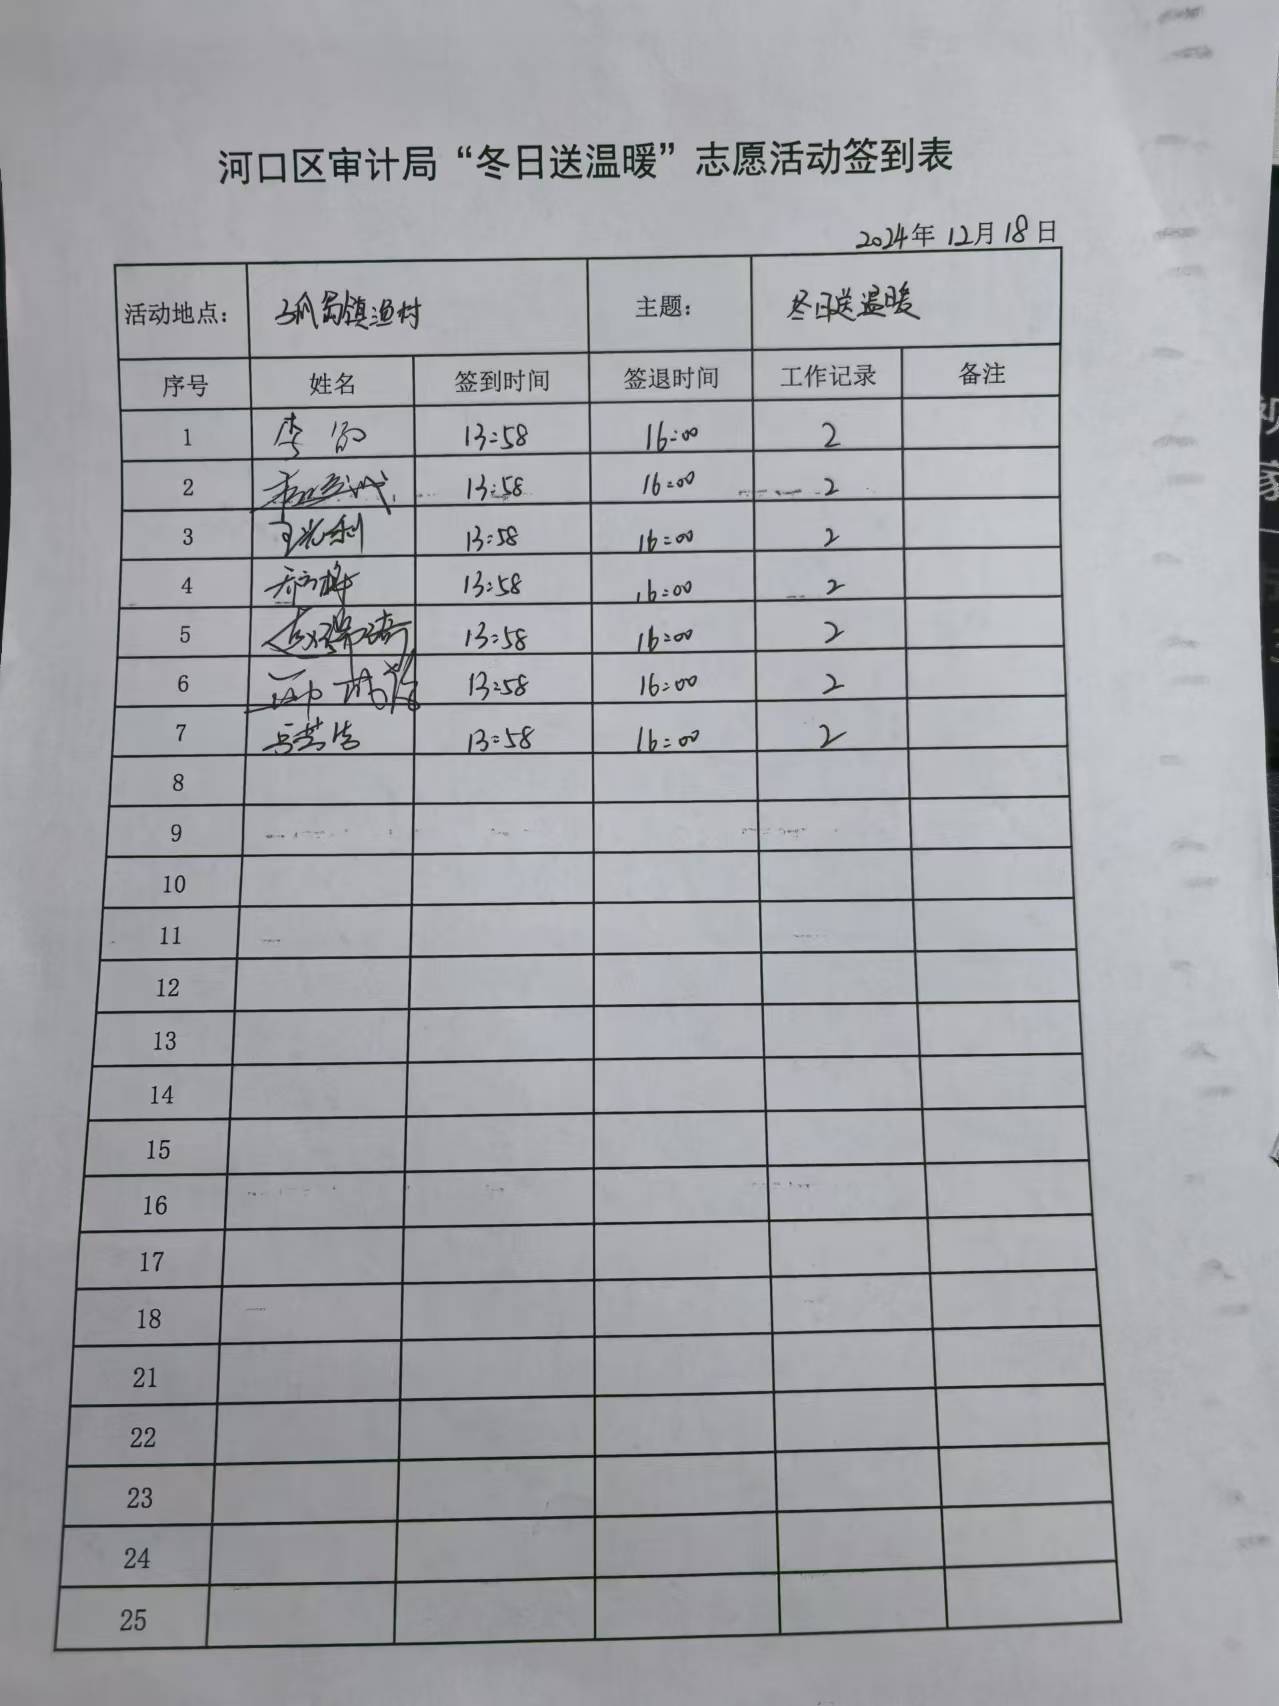 河口区审计局“冬日送温暖”志愿活动签到表
2024年12月18日
活动地点： 镇渔村 主题： 冬日送温暖
序号 姓名 签到时间 签退时间 工作记录 备注
1 李 13:58 16:00 2
2 13:58 16:00 2
3 王光利 13:58 16:00 2
4 13:58 16:00 2
5 13:58 16:00 2
6 13:58 16:00 2
7 13:58 16:00 2
8
9
10
11
12
13
14
15
16
17
18
21
22
23
24
25
家